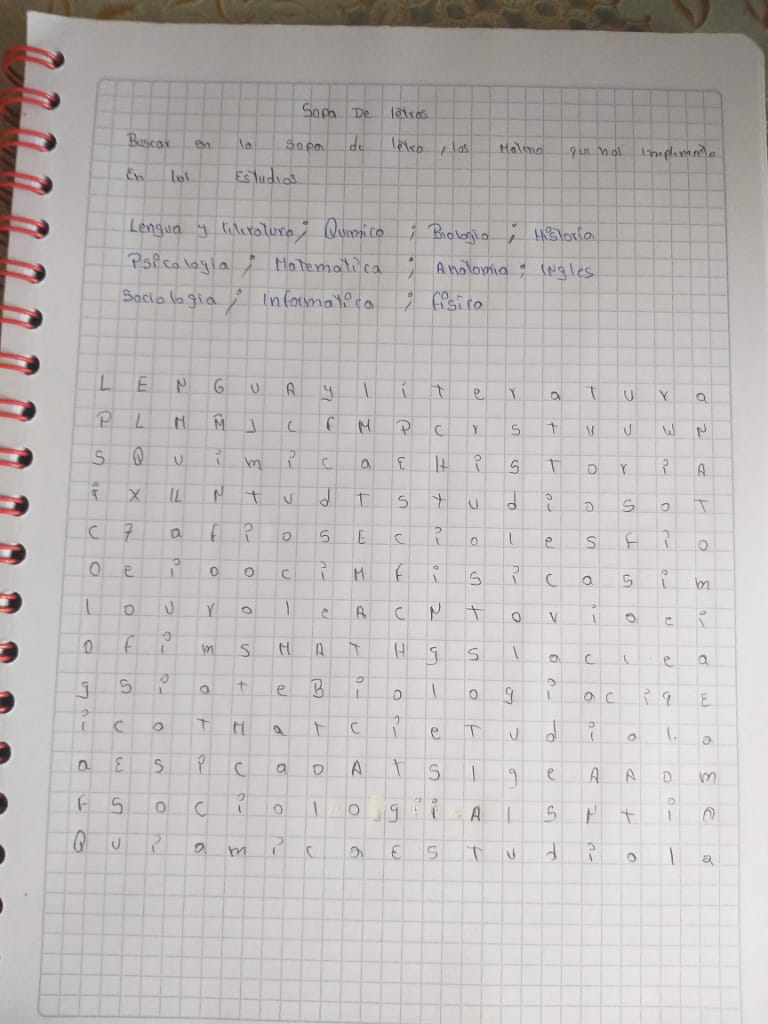 Sopa De letras
Buscar en la sopa de letra, los que nos implementa
En los Estudios
Lengua y literatura; Quimica ; Biologia ; Historia
Psicologia ; Matematica ; Anatomia ; Ingles
Sociologia ; Informatica ; fisica
L E N G U A y l i t e r a t u r a
P L M Ñ J C F M P C r S t V U W N
S Q u i m i c a E H i S T o r i A
i x LL N t u d t s t u d i o s o T
C 7 a f i o S E C i o l e s f i o
O e i o o c i M f i s i c a s i m
l o u r o l e A C N t o v i o c i
o f i m s M A T H g s l a c i e a
g S i a t e B i o l o g i a c i q E
i c o T M a t C i e T u d i a l a
a E S P C a o A t S I g e A A O m
f S O C i o l o g i A I S N t i n
Q u i a m i c a E S T u d i o l a